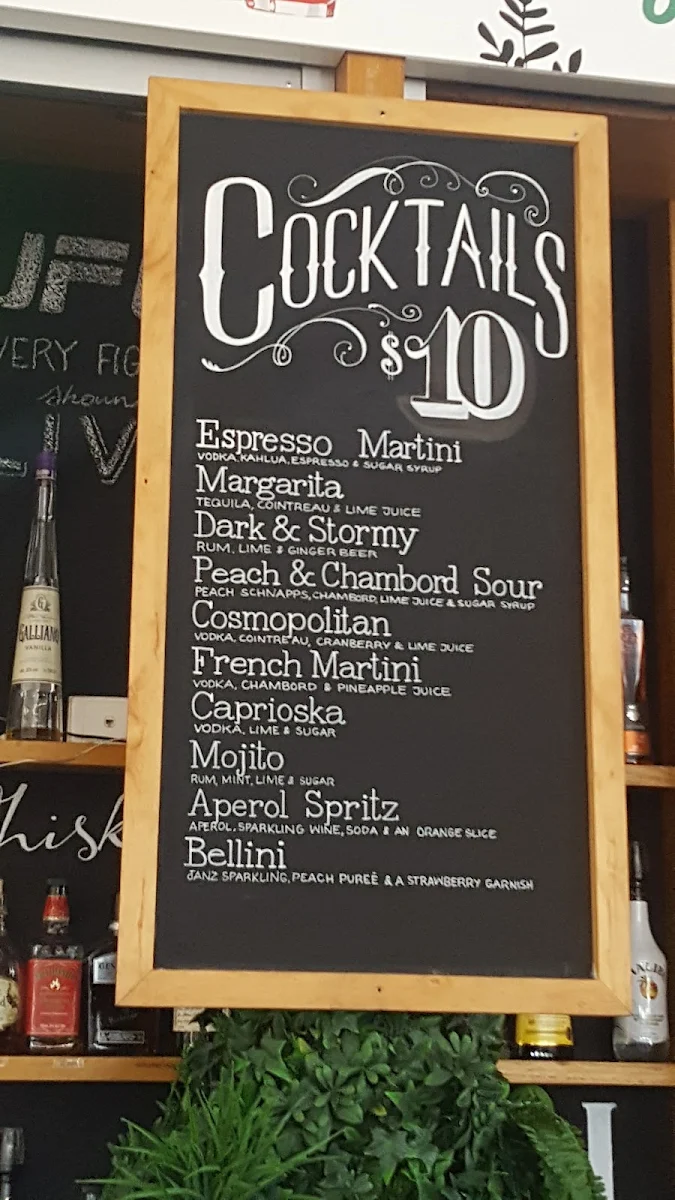 COCKTAILS
$10
Espresso Martini
VODKA, KAHLUA, ESPRESSO & SUGAR SYRUP
Margarita
TEQUILA, COINTREAU & LIME JUICE
Dark & Stormy
RUM, LIME & GINGER BEER
Peach & Chambord Sour
PEACH SCHNAPPS, CHAMBORD, LIME JUICE & SUGAR SYRUP
Cosmopolitan
VODKA, COINTREAU, CRANBERRY & LIME JUICE
French Martini
VODKA, CHAMBORD & PINEAPPLE JUICE
Caprioska
VODKA, LIME & SUGAR
Mojito
RUM, MINT, LIME & SUGAR
Aperol Spritz
APEROL, SPARKLING WINE, SODA & AN ORANGE SLICE
Bellini
JANZ SPARKLING, PEACH PUREÈ & A STRAWBERRY GARNISH
GALLIANO
VANILLA